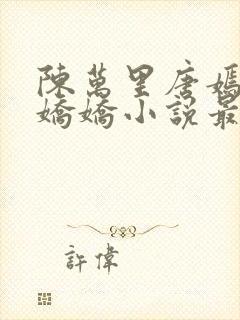 陳萬里唐嫣
嬌嬌小說最
許偉